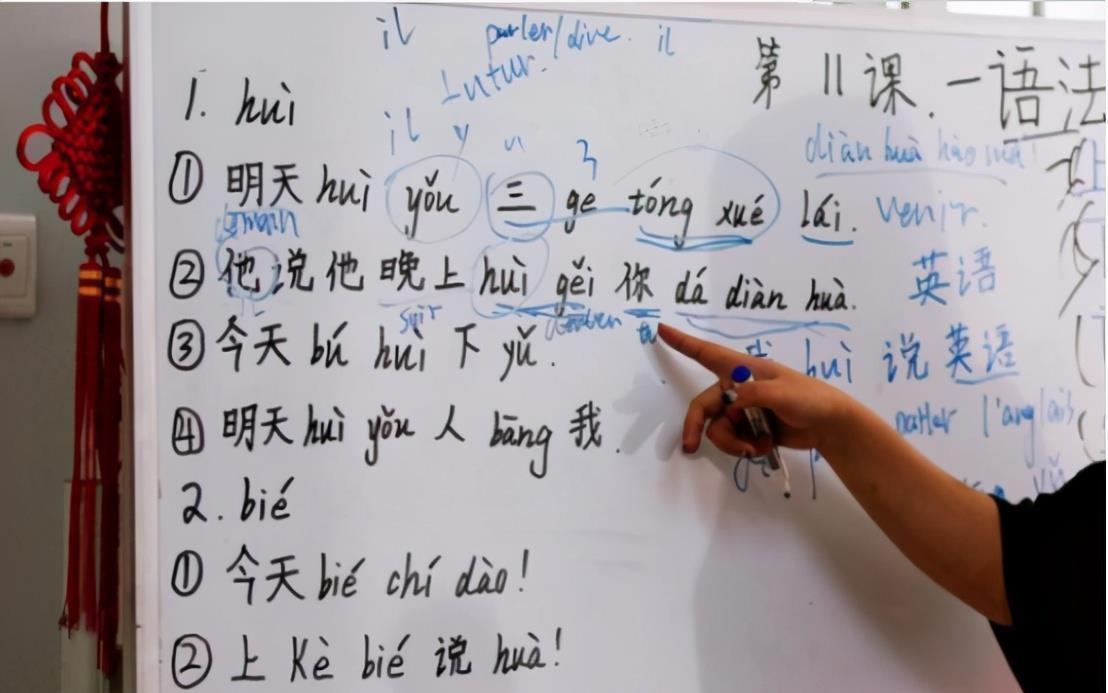 il parler/dire. il
futur.
第 11 课. 一 语法
1. huì
il y
diàn huà hǎo ma!
① 明天 huì yǒu 三 ge tóng xué lái. venir.
demain
② 他说他晚上 huì gěi 你 dá diàn huà. 英语
soir tu
③ 今天 bú huì 下 yǔ. huì 说英语
parler l'anglais
④ 明天 huì yǒu 人 bāng 我.
2. bié
① 今天 bié chí dào!
② 上 Kè bié 说 huà!